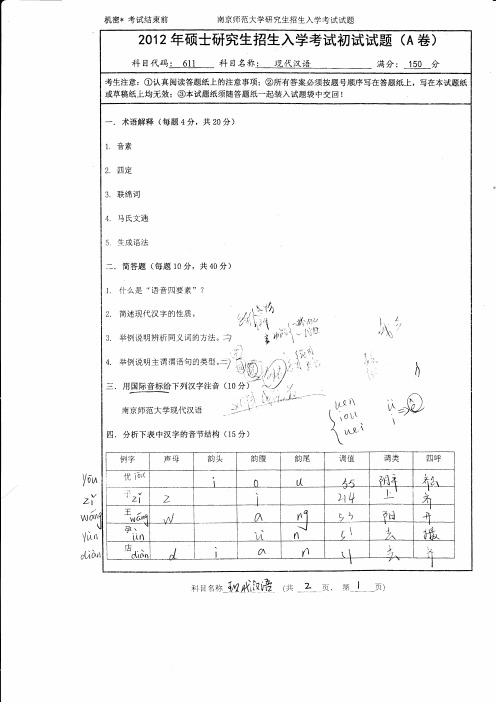 机密* 考试结束前 南京师范大学研究生招生入学考试试题
2012 年硕士研究生招生入学考试初试试题（A 卷）
科目代码: 611 科目名称: 现代汉语 满分: 150 分
考生注意: ①认真阅读答题纸上的注意事项; ②所有答案必须按题号顺序写在答题纸上, 写在本试题纸
或草稿纸上均无效; ③本试题纸须随答题纸一起装入试题袋中交回!
一. 术语解释 (每题 4 分, 共 20 分)
1. 音素
2. 四定
3. 联绵词
4. 马氏文通
5. 生成语法
二. 简答题 (每题 10 分, 共 40 分)
1. 什么是“语音四要素”?
2. 简述现代汉字的性质。
3. 举例说明辨析同义词的方法。
4. 举例说明主谓谓语句的类型。
三. 用国际音标给下列汉字注音 (10 分)
南京师范大学现代汉语
uen
iou
uei
ü
i
四. 分析下表中汉字的音节结构 (15 分)
例字 声母 韵头 韵腹 韵尾 调值 调类 四呼
yōu 优 iou i o u 55 阴平
zǐ 子 zǐ z i 214 上 齐
wáng 王 wáng w a ng 53 阳 开
yùn 孕 ün ü n 51 去 撮
diàn 店 diàn d i a n 51 去 齐
科目名称 现代汉语 (共 2 页, 第 1 页)